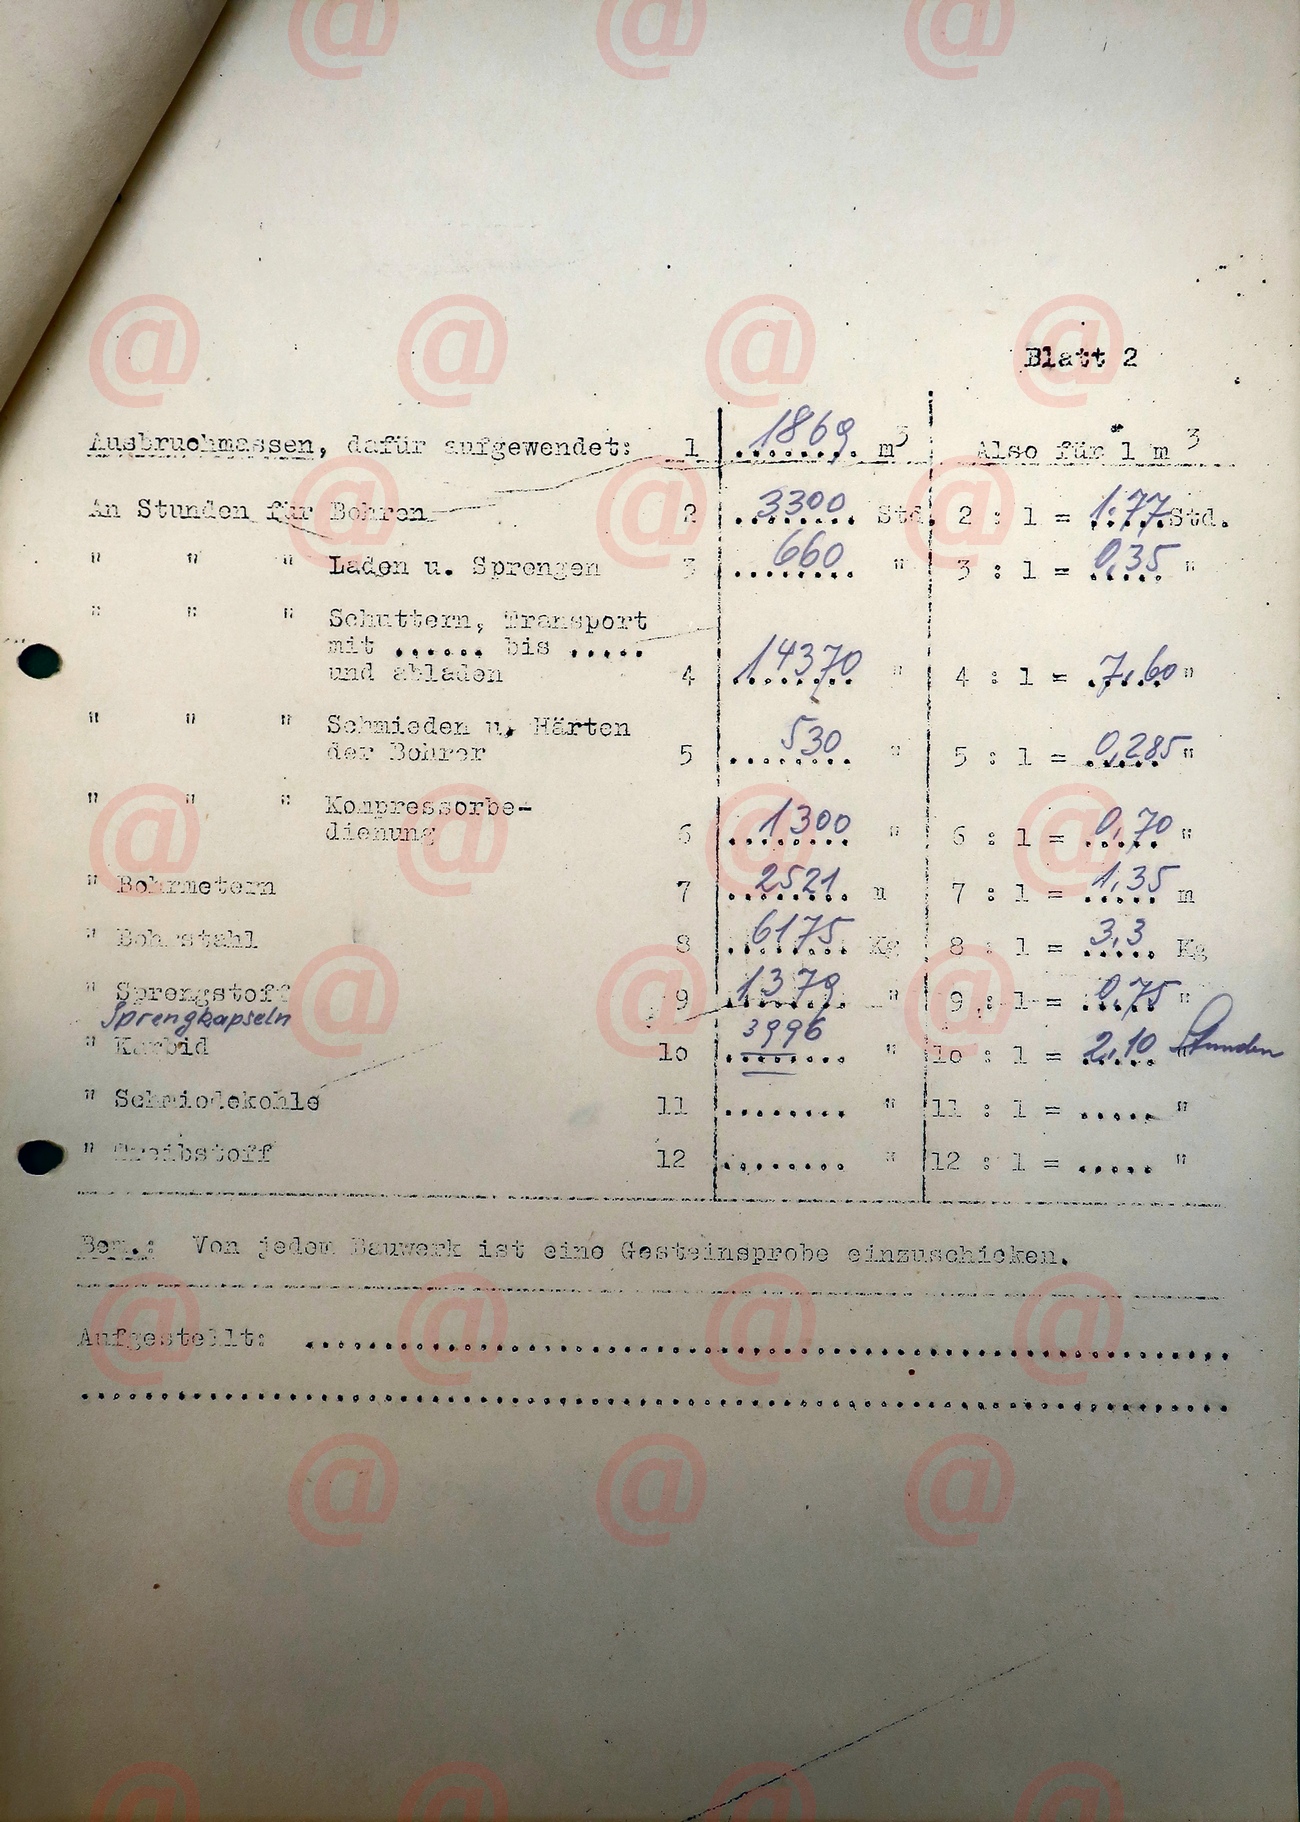 Blatt 2
Ausbruchmassen, dafür aufgewendet: 1 1869 m3 Also für 1 m3
An Stunden für Bohren 2 3300 Std. 2 : 1 = 1.77 Std.
" " " Laden u. Sprengen 3 660 " 3 : 1 = 0,35 "
" " " Schuttern, Transport
mit ...... bis .....
und abladen 4 14370 " 4 : 1 = 7,60 "
" " " Schmieden u. Härten
der Bohrer 5 530 " 5 : 1 = 0,285 "
" " " Kompressorbe-
dienung 6 1300 " 6 : 1 = 0,70 "
" Bohrmetern 7 2521 m 7 : 1 = 1,35 m
" Bohrstahl 8 6175 Kg 8 : 1 = 3,3 Kg
" Sprengstoff 9 1379 " 9 : 1 = 0,75 "
Sprengkapseln 3996
" Karbid 10 ........ " 10 : 1 = 2,10 Stunden
" Schmiedekohle 11 ........ " 11 : 1 = ..... "
" Treibstoff 12 ........ " 12 : 1 = ..... "
Bem.: Von jedem Bauwerk ist eine Gesteinsprobe einzuschicken.
Aufgestellt: ..........